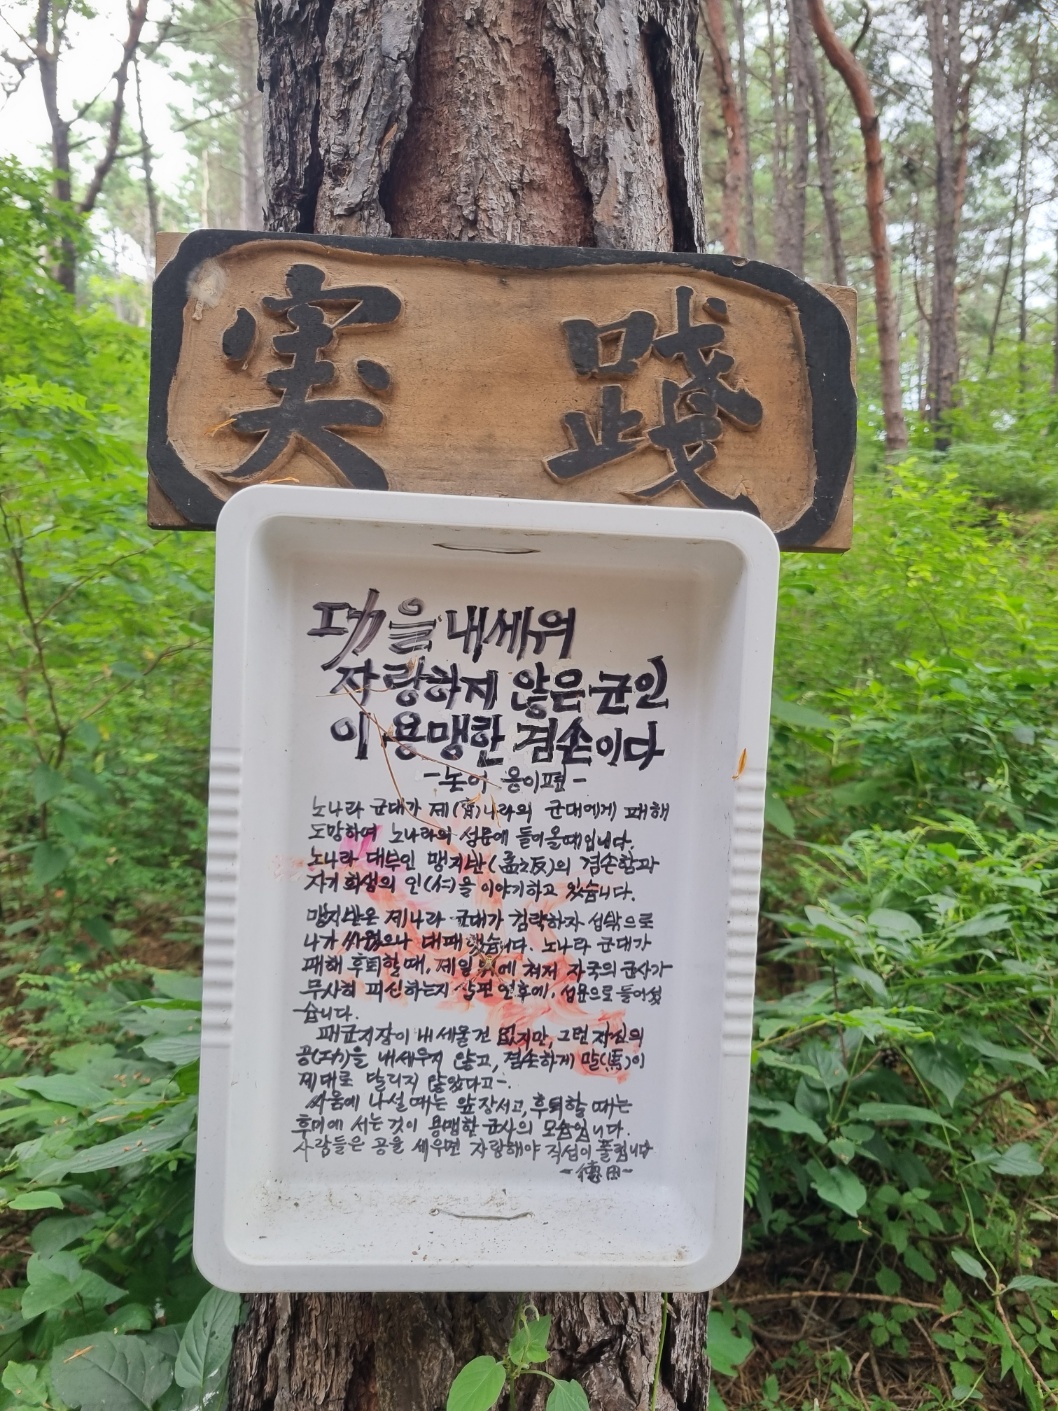 実踐
功을 내세워
자랑하지 않은 군인
이 용맹한 겸손이다
-논어 옹이편-
노나라 군대가 제(齊)나라의 군대에게 패해
도망하여 노나라의 성문에 들어올때입니다.
노나라 대부인 맹지반(孟之反)의 겸손함과
자기 희생의 인(仁)을 이야기하고 있습니다.
맹지반은 제나라 군대가 침략하자 섬밖으로
나가 싸웠으나 대패했습니다. 노나라 군대가
패해 후퇴할 때, 제일 뒤에 쳐저 자국의 군사가
무사히 피신하는지 살핀 연후에, 성문으로 들어섰
습니다.
패군지장이 내세울건 없지만, 그런 자신의
공(功)을 내세우지 않고, 겸손하게 말(馬)이
제대로 달리지 않았다고-.
싸움에 나설 때는 앞장서고, 후퇴할 때는
후미에 서는 것이 용맹한 군사의 모습입니다.
사람들은 공을 세우면 자랑해야 직성이 풀립니다
-德田-